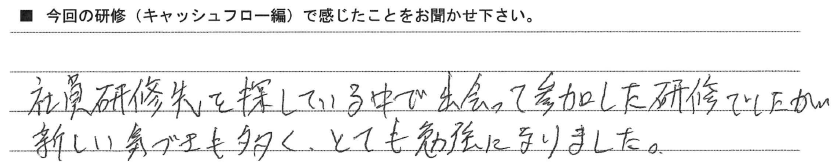 ■ 今回の研修（キャッシュフロー編）で感じたことをお聞かせ下さい。
社員研修先を探している中で出会って参加した研修でしたが
新しい気づきも多く、とても勉強になりました。